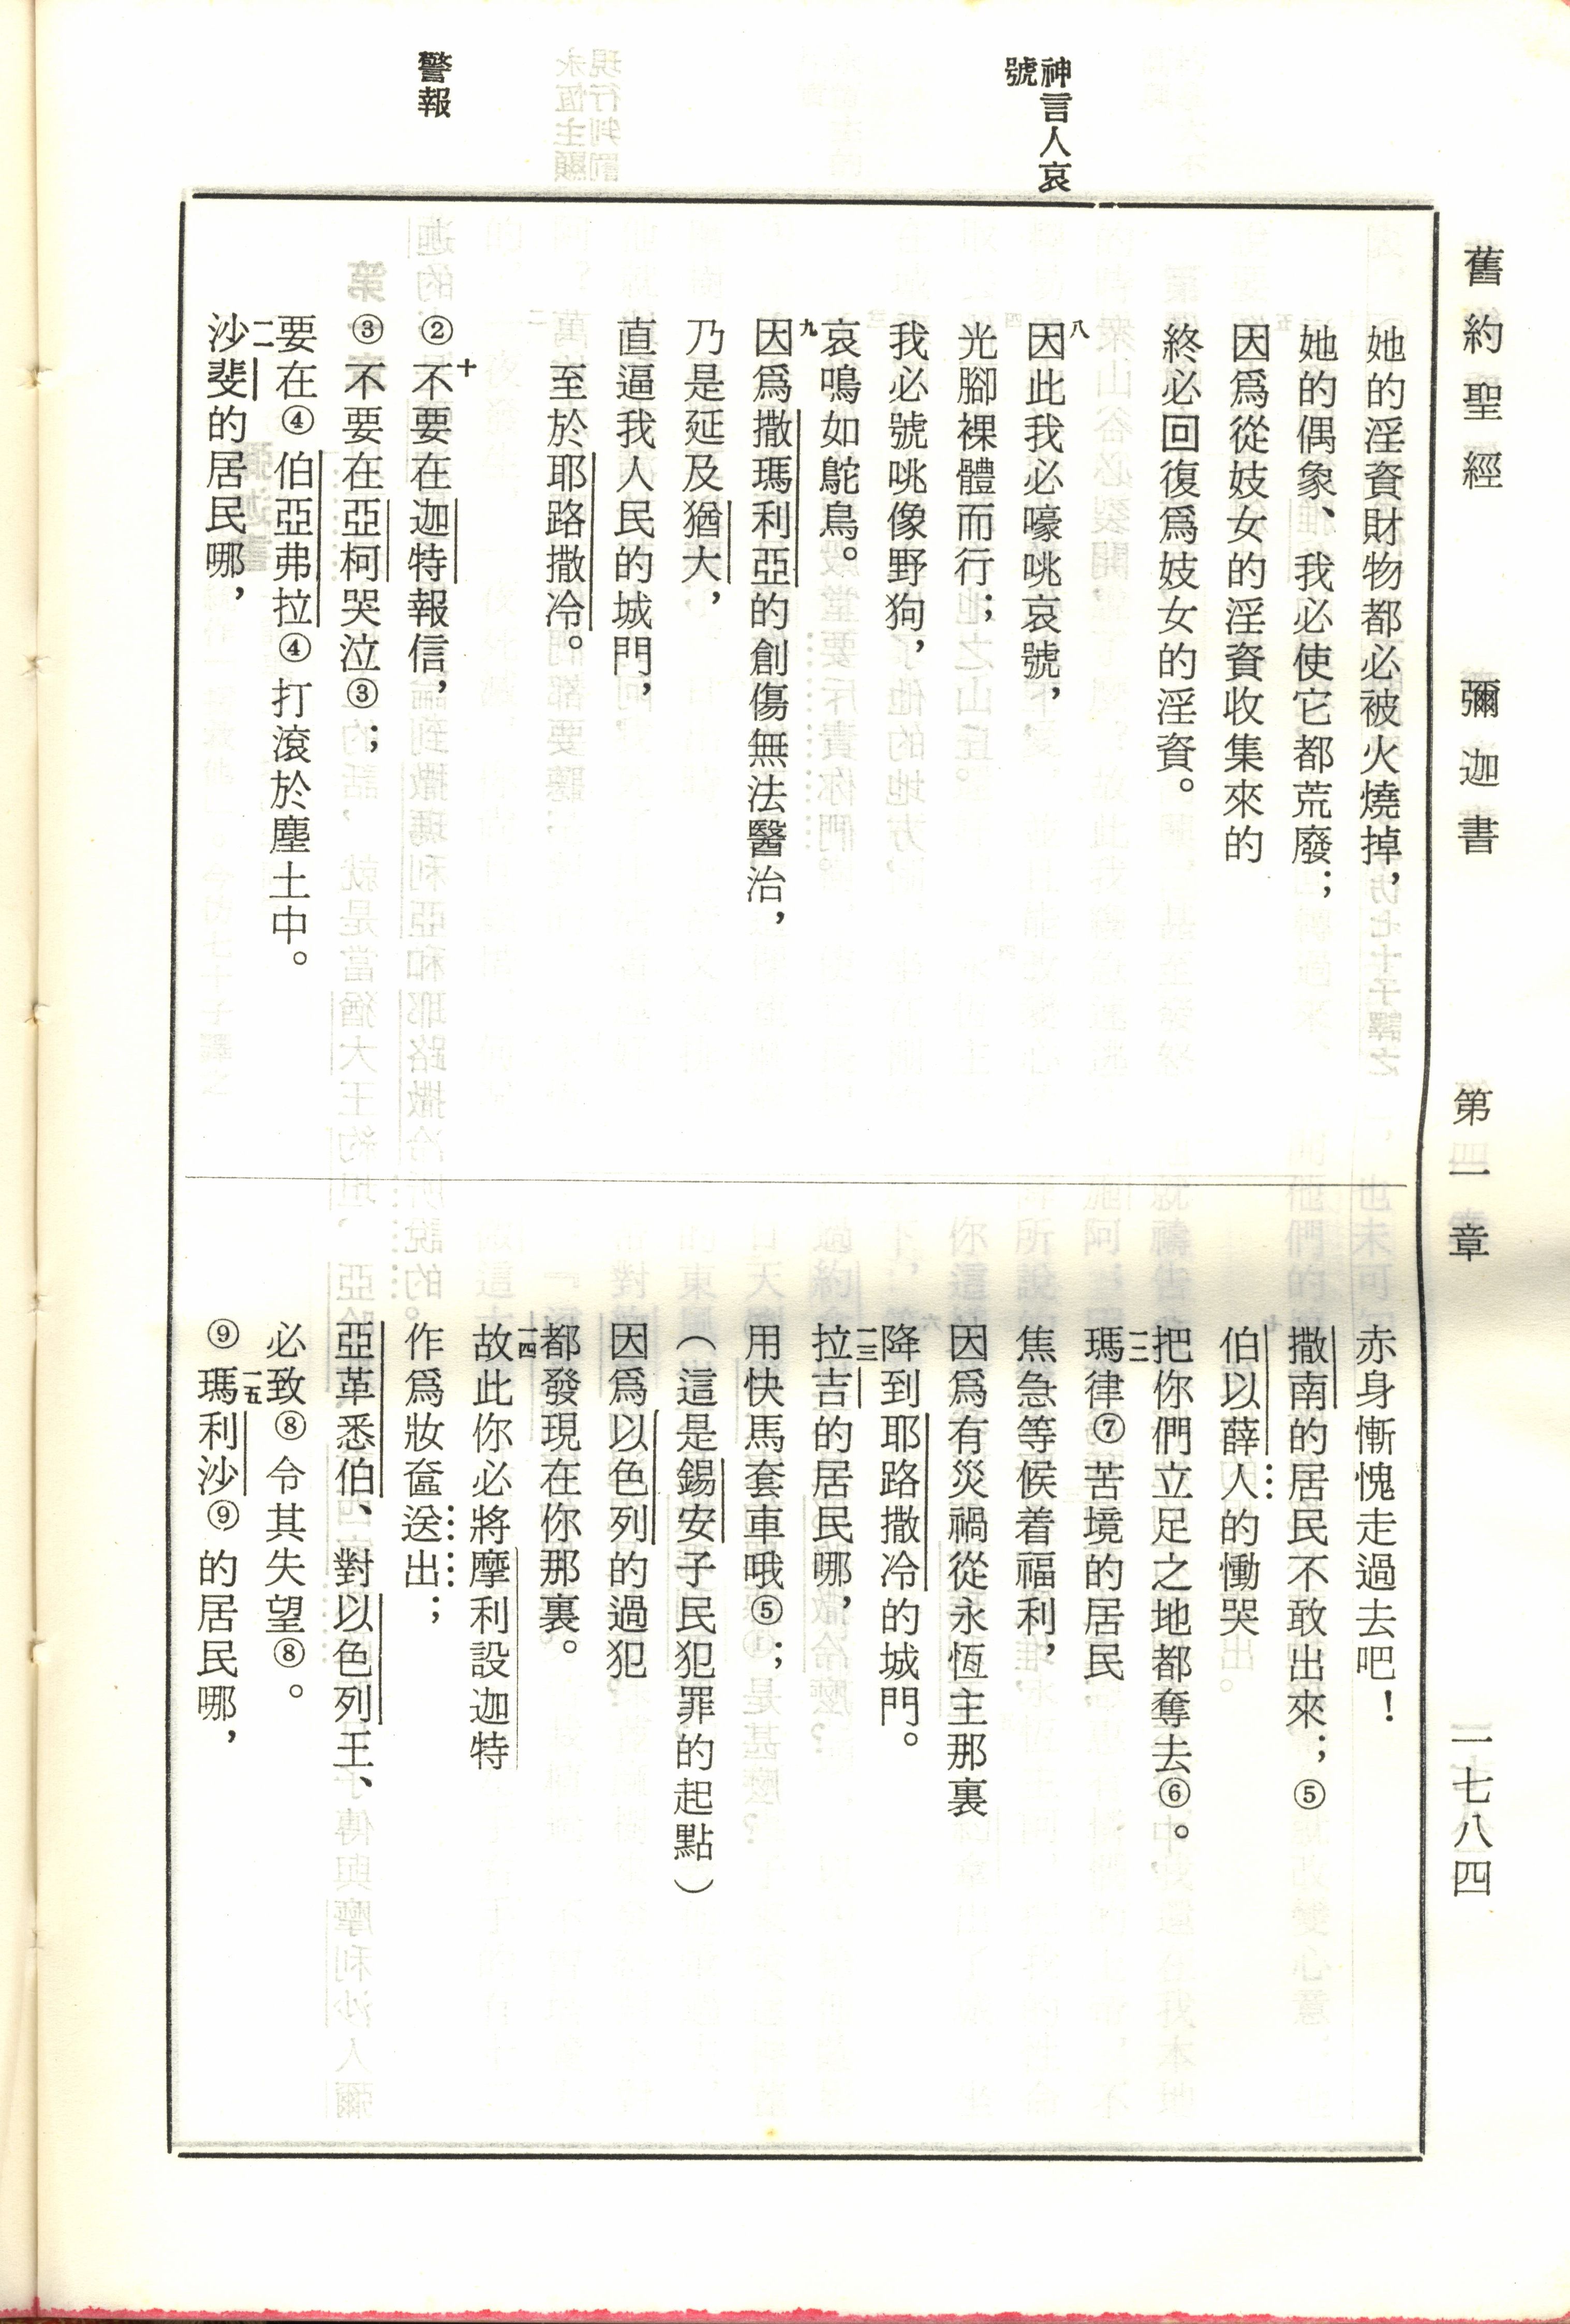 舊約聖經　彌迦書　第一章　一七八四
神言人哀
號
警報
她的淫資財物都必被火燒掉，
她的偶象、我必使它都荒廢；
因爲從妓女的淫資收集來的
終必回復爲妓女的淫資。
八因此我必嚎咷哀號，
光腳裸體而行；
我必號咷像野狗，
哀鳴如鴕鳥。
九因爲撒瑪利亞的創傷無法醫治，
乃是延及猶大，
直逼我人民的城門，
至於耶路撒冷。
十②不要在迦特報信，
③不要在亞柯哭泣③；
要在④伯亞弗拉④打滾於塵土中。
一一沙斐的居民哪，
赤身慚愧走過去吧！
撒南的居民不敢出來；⑤
伯以薛人的慟哭
把你們立足之地都奪去⑥。
一二瑪律⑦苦境的居民
焦急等候着福利，
因爲有災禍從永恆主那裏
降到耶路撒冷的城門。
一三拉吉的居民哪，
用快馬套車哦⑤；
（這是錫安子民犯罪的起點）
因爲以色列的過犯
都發現在你那裏。
一四故此你必將摩利設迦特
作爲妝奩送出；
亞革悉伯、對以色列王、
必致⑧令其失望⑧。
一五⑨瑪利沙⑨的居民哪，